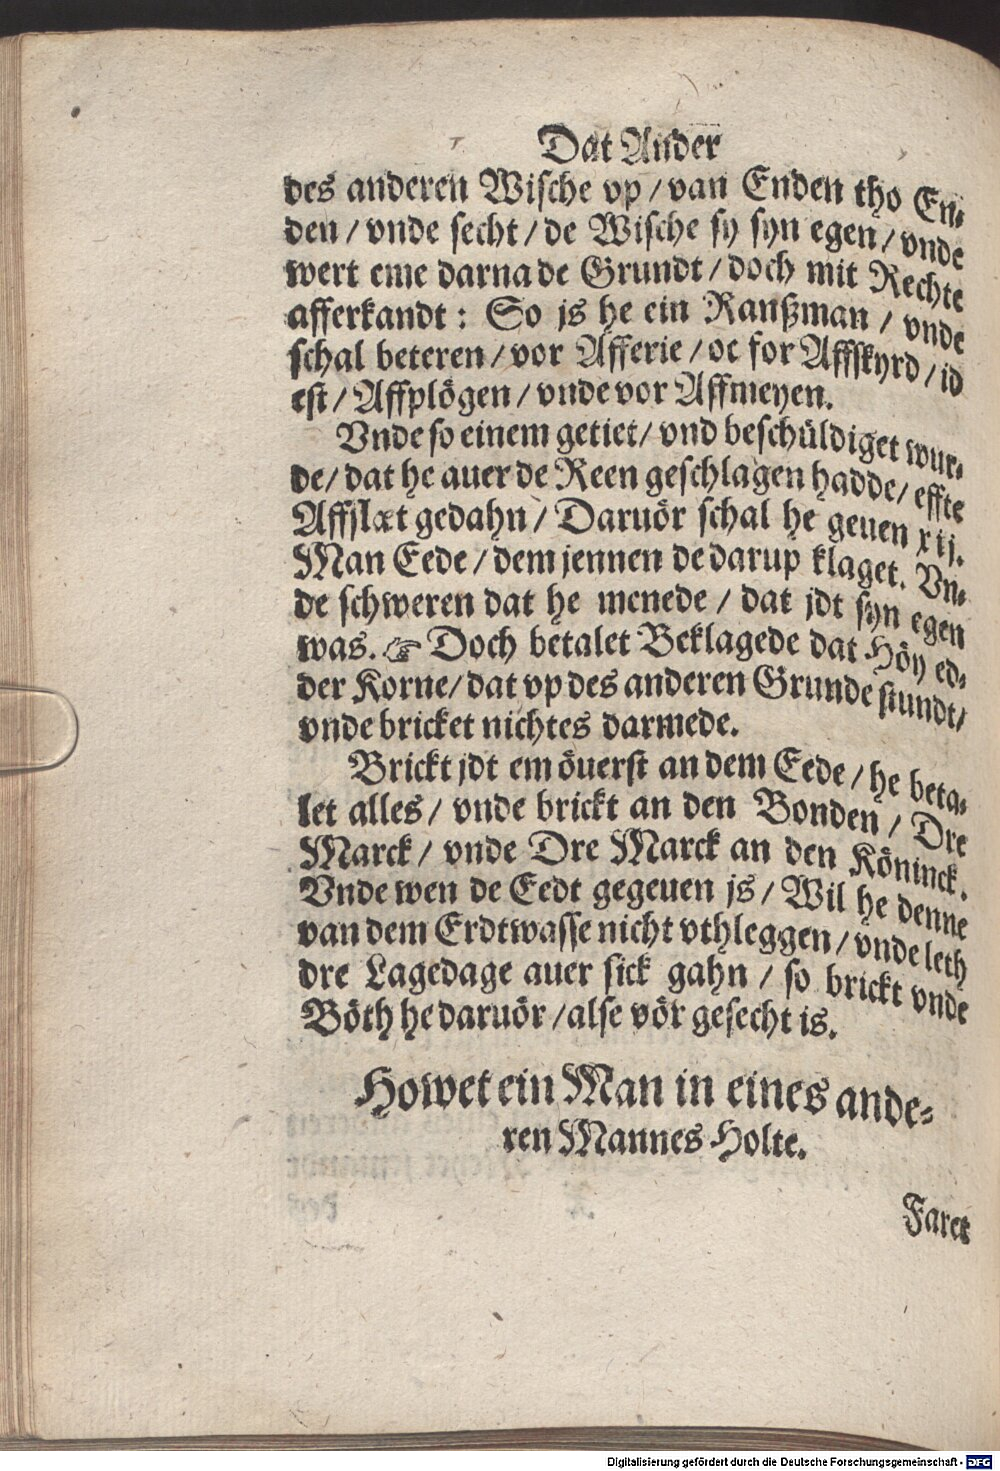 Dat Ander
des anderen Wische vp / van Enden tho En-
den / vnde secht / de Wische sy syn egen / vnde
wert eme darna de Grundt / doch mit Rechte
afferkandt : So js he ein Ranßman / vnde
schal beteren / vor Afferie / oc for Affskyrd / id
est / Affplögen / vnde vor Affmeyen.
Vnde so einem getiet / vnd beschüldiget wur-
de / dat he auer de Reen geschlagen hadde / effte
Affslæt gedahn / Daruör schal he geuen xij.
Man Eede / dem jennen de darup klaget. Vn-
de schweren dat he menede / dat jdt syn egen
was. ☞ Doch betalet Beklagede dat Höy ed-
der Korne / dat vp des anderen Grunde stundt /
vnde bricket nichtes darmede.
Brickt jdt em öuerst an dem Eede / he beta-
let alles / vnde brickt an den Bonden / Dre
Marck / vnde Dre Marck an den Köninck.
Vnde wen de Eedt gegeuen js / Wil he denne
van dem Erdtwasse nicht vthleggen / vnde leth
dre Lagedage auer sick gahn / so brickt vnde
Böth he daruör / alse vör gesecht is.
Howet ein Man in eines ande-
ren Mannes Holte.
Faret
Digitalisierung gefördert durch die Deutsche Forschungsgemeinschaft - DFG